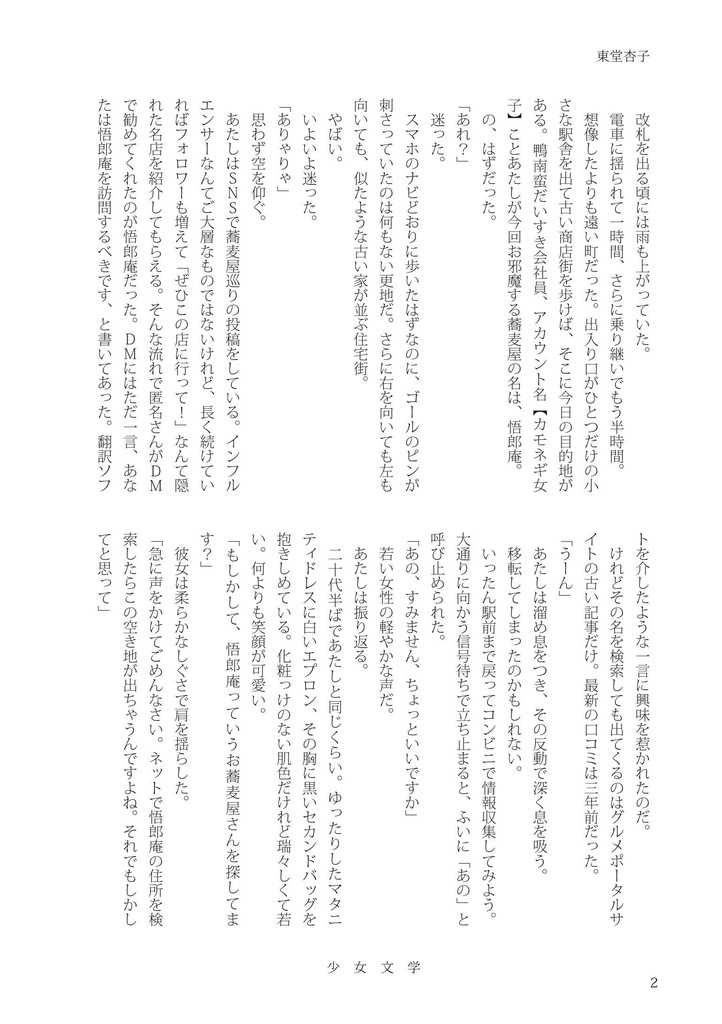 東堂杏子
改札を出る頃には雨も上がっていた。
電車に揺られて一時間、さらに乗り継いでもう半時間。
想像したよりも遠い町だった。出入り口がひとつだけの小
さな駅舎を出て古い商店街を歩けば、そこに今日の目的地が
ある。鴨南蛮だいすき会社員、アカウント名【カモネギ女
子】ことあたしが今回お邪魔する蕎麦屋の名は、悟郎庵。
の、はずだった。
「あれ？」
迷った。
スマホのナビどおりに歩いたはずなのに、ゴールのピンが
刺さっていたのは何もない更地だ。さらに右を向いても左も
向いても、似たような古い家が並ぶ住宅街。
やばい。
いよいよ迷った。
「ありゃりゃ」
思わず空を仰ぐ。
あたしはＳＮＳで蕎麦屋巡りの投稿をしている。インフル
エンサーなんてご大層なものではないけれど、長く続けてい
ればフォロワーも増えて「ぜひこの店に行って！」なんて隠
れた名店を紹介してもらえる。そんな流れで匿名さんがＤＭ
で勧めてくれたのが悟郎庵だった。ＤＭにはただ一言、あな
たは悟郎庵を訪問するべきです、と書いてあった。翻訳ソフ
トを介したような一言に興味を惹かれたのだ。
けれどその名を検索しても出てくるのはグルメポータルサ
イトの古い記事だけ。最新の口コミは三年前だった。
「うーん」
あたしは溜め息をつき、その反動で深く息を吸う。
移転してしまったのかもしれない。
いったん駅前まで戻ってコンビニで情報収集してみよう。
大通りに向かう信号待ちで立ち止まると、ふいに「あの」と
呼び止められた。
「あの、すみません、ちょっといいですか」
若い女性の軽やかな声だ。
あたしは振り返る。
二十代半ばであたしと同じくらい。ゆったりしたマタニ
ティドレスに白いエプロン、その胸に黒いセカンドバッグを
抱きしめている。化粧っけのない肌色だけれど瑞々しくて若
い。何よりも笑顔が可愛い。
「もしかして、悟郎庵っていうお蕎麦屋さんを探してま
す？」
彼女は柔らかなしぐさで肩を揺らした。
「急に声をかけてごめんなさい。ネットで悟郎庵の住所を検
索したらこの空き地が出ちゃうんですよね。それでもしかし
てと思って」
少女文学
2